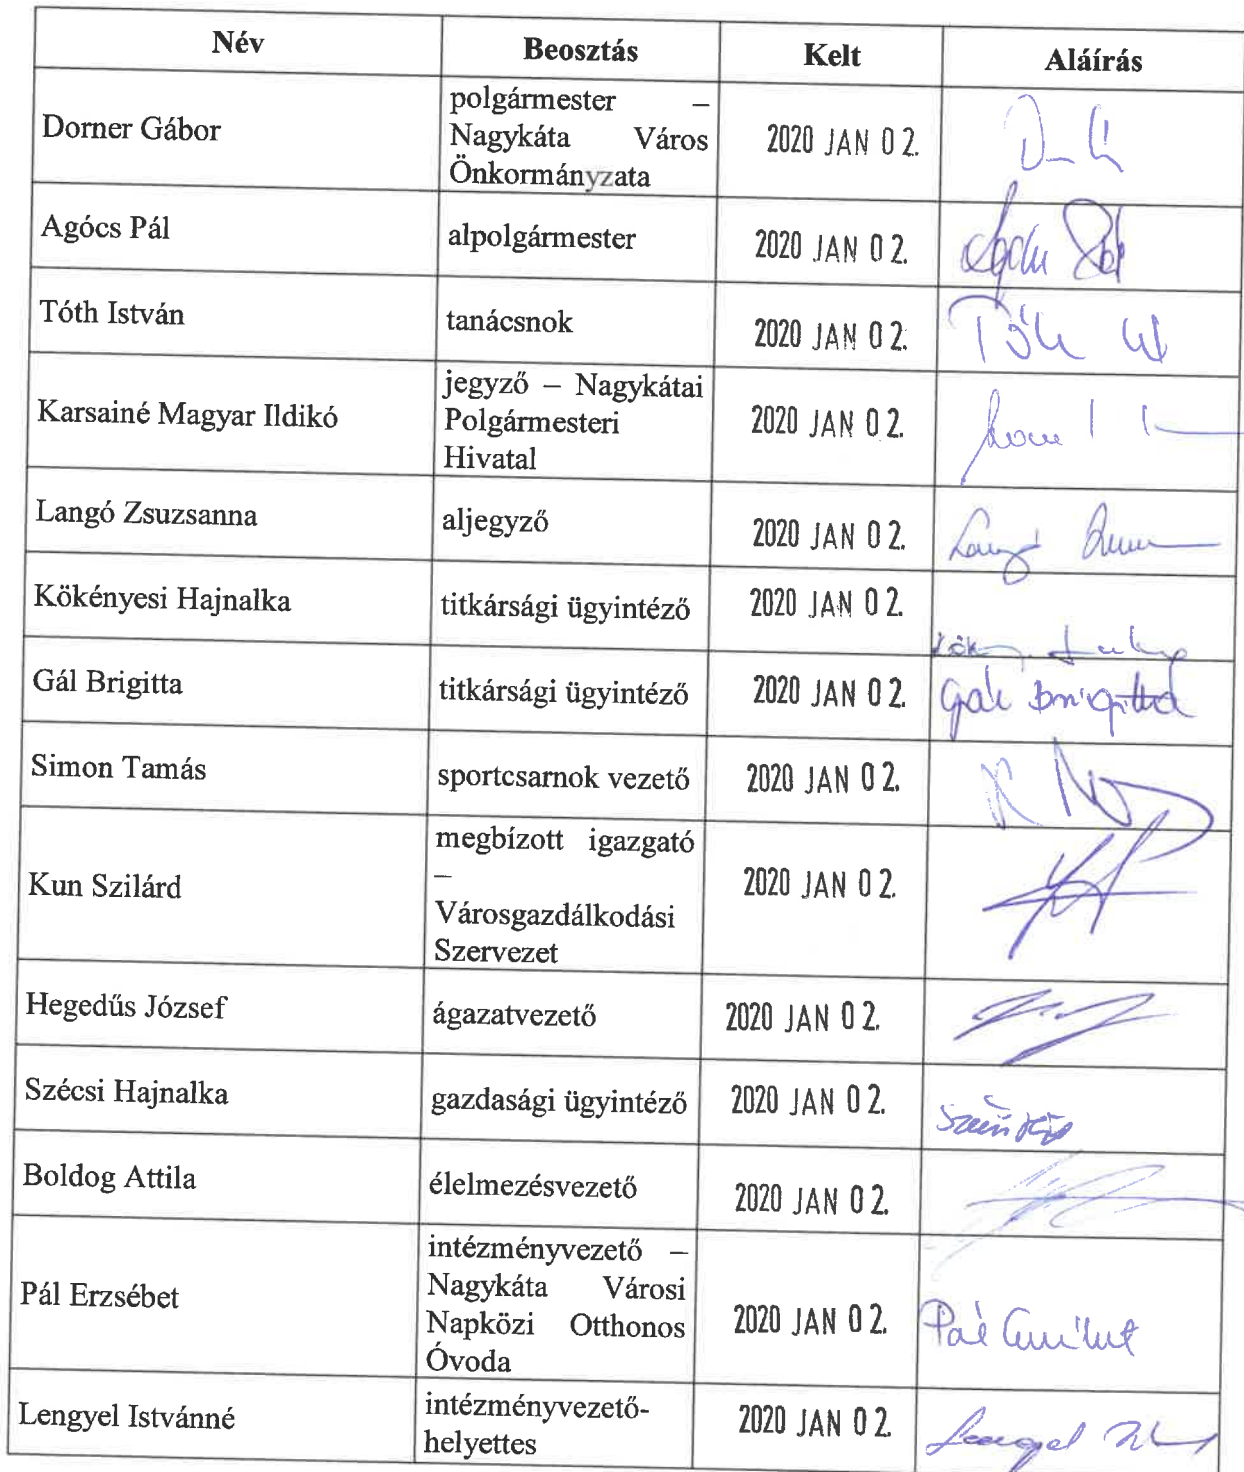 Név Beosztás Kelt Aláírás
Dorner Gábor
polgármester –
Nagykáta Város
Önkormányzata
2020 JAN 02.
Agócs Pál alpolgármester 2020 JAN 02.
Tóth István tanácsnok 2020 JAN 02.
Karsainé Magyar Ildikó
jegyző – Nagykátai
Polgármesteri
Hivatal
2020 JAN 02.
Langó Zsuzsanna aljegyző 2020 JAN 02.
Kökényesi Hajnalka titkársági ügyintéző 2020 JAN 02.
Gál Brigitta titkársági ügyintéző 2020 JAN 02. Gál Brigitta
Simon Tamás sportcsarnok vezető 2020 JAN 02.
Kun Szilárd
megbízott igazgató
–
Városgazdálkodási
Szervezet
2020 JAN 02.
Hegedűs József ágazatvezető 2020 JAN 02.
Szécsi Hajnalka gazdasági ügyintéző 2020 JAN 02.
Boldog Attila élelmezésvezető 2020 JAN 02.
Pál Erzsébet
intézményvezető –
Nagykáta Városi
Napközi Otthonos
Óvoda
2020 JAN 02. Pál Erzsébet
Lengyel Istvánné
intézményvezető-
helyettes
2020 JAN 02.